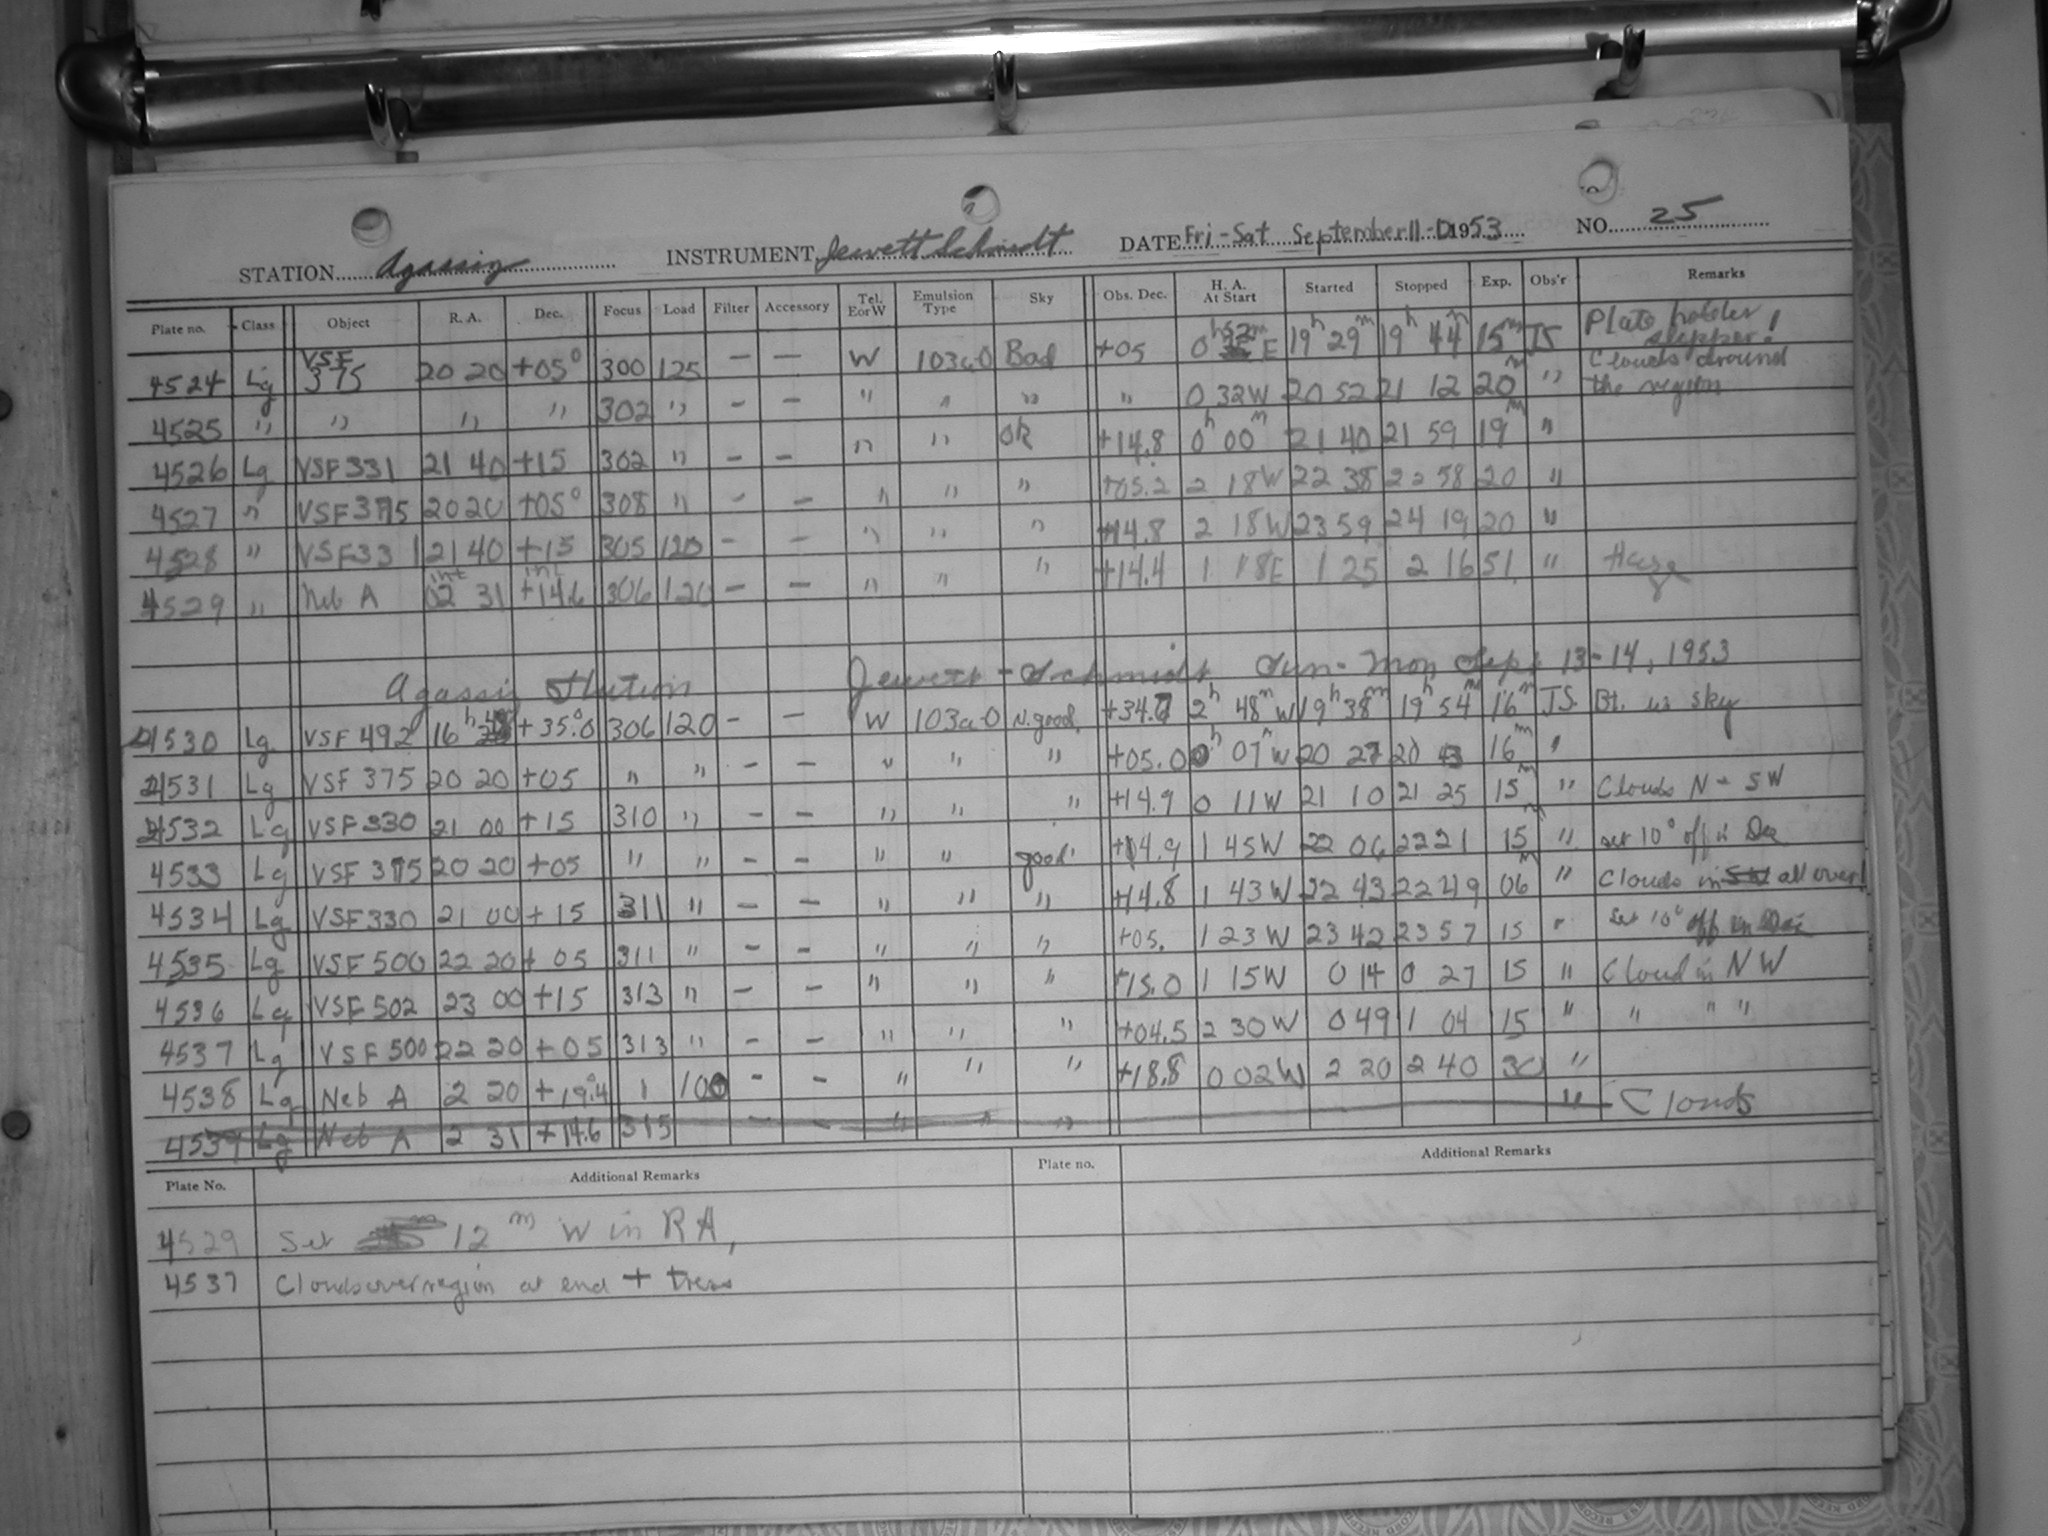 STATION Agassiz INSTRUMENT Jewett Schmidt DATE Fri-Sat September 11-D1953 NO. 25
Plate no. Class Object R. A. Dec. Focus Load Filter Accessory Tel. E or W Emulsion Type Sky Obs. Dec. H. A. At Start Started Stopped Exp. Obs'r Remarks
4524 Lg VSF 375 20 20 +05° 300 125 - - W 103a0 Bad +05 0h 52m E 19h 29m 19h 44m 15m JS Plate holder slipper!
4525 " " " " 302 " - - " " " " 0 32W 20 52 21 12 20m " Clouds around the region
4526 Lg VSF 331 21 40 +15 302 " - - " " OK +14.8 0h 00m 21 40 21 59 19m "
4527 " VSF 375 20 20 +05° 308 " - - " " " +05.2 2 18W 22 38 22 58 20 "
4528 " VSF 331 21 40 +15 305 120 - - " " " +14.8 2 18W 23 59 24 19 20 "
4529 " Neb A int 02 31 int +14.6 306 120 - - " " " +14.4 1 18E 1 25 2 16 51 " Haze
Agassiz Station Jewett-Schmidt Sun-Mon Sept 13-14, 1953
4530 Lg VSF 492 16h +35°.0 306 120 - - W 103a0 N. good +34.7 2h 48m W 19h 38m 19h 54m 16m JS Bt. in sky
4531 Lg VSF 375 20 20 +05 " " - - " " " +05.0 0h 07m W 20 27 20 43 16m "
4532 Lg VSF 330 21 00 +15 310 " - - " " " +14.9 0 11W 21 10 21 25 15m " Clouds N - SW
4533 Lg VSF 375 20 20 +05 " " - - " " good +14.9 1 45W 22 06 22 21 15m " set 10° off in Dec
4534 Lg VSF 330 21 00 +15 311 " - - " " " +14.8 1 43W 22 43 22 49 06m " Clouds in all over!
4535 Lg VSF 500 22 20 +05 311 " - - " " " +05. 1 23W 23 42 23 57 15 " Set 10° off in Dec
4536 Lg VSF 502 23 00 +15 313 " - - " " " +15.0 1 15W 0 14 0 27 15 " Cloud in NW
4537 Lg VSF 500 22 20 +05 313 " - - " " " +04.5 2 30W 0 49 1 04 15 " " " "
4538 Lg Neb A 2 20 +19°.4 1 100 - - " " " +18.8 0 02W 2 20 2 40 30 "
4539 Lg Neb A 2 31 +14.6 315 - - " " " " Clouds
Plate No. Additional Remarks Plate no. Additional Remarks
4529 Set 12m W in RA,
4537 Clouds over region at end + trees